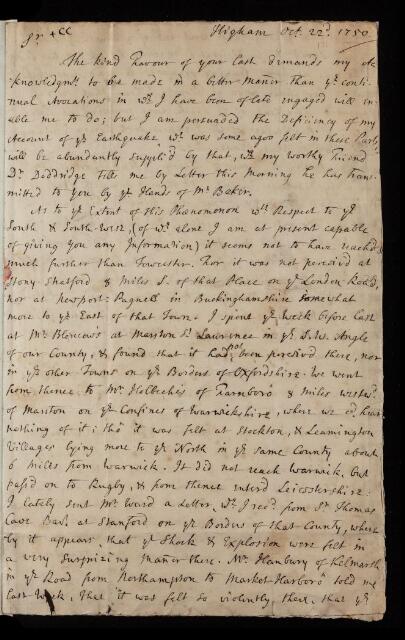 Higham Oct. 22d. 1750.
The kind Favour of your last demands my Ac
knowledgmts. to be made in a better Maner than ye. conti
nual Avocations in wch. I have been of late engaged will in-
able me to do; but I am persuaded the Deficiency of my
Account of ye. Earthquake wch. was some ago felt in these Parts
will be abundantly supply'd by that, wch. my worthy Friend
Dr. Doddridge tells me by Letter this Morning he has trans-
mitted to you by ye. Hands of Mr. Baker.
As to ye. Extent of this Phænomenon wth. Respect to ye.
South & South-West, (of wch. alone I am at present capable
of giving You any Information) it seems not to have reached
much further than Towcester. For it was not perceiv'd at
Stony Stratford 8 Miles S. of that Place on ye. London Road,
nor at Newport-Pagnell in Buckinghamshire somewhat
more to ye. East of that Town. I spent ye. Week before last
at Mr. Blencow's at Marston St. Lawrence in ye. S.W. Angle
of our County, & found that it had not been perceiv'd there, nor
in ye. other Towns on ye. Borders of Oxfordshire. We went
from thence to Mr. Holbech's of Farnboro' 8 Miles westwd.
of Marston on ye. Confines of Warwickshire, where we cd. hear
nothing of it; tho' it was felt at Stockton, & Leamington
Villages lying more to ye. North in ye. same County about
6 Miles from Warwick. It did not reach Warwick, but
pass'd on to Rugby, & from thence enter'd Leicestershire.
I lately sent Mr. Ward a Letter, wch. I recd. from Sr. Thomas
Cave Bart. at Stanford on ye. Borders of that County, where-
by it appears that ye. Shock & Explosion were felt in
a very surprizing Maner there. Mr. Hanbury of Kelmarsh
in ye. Road from Northampton to Market-Harboro' told me
last Week, that it was felt so violently there, that ye.